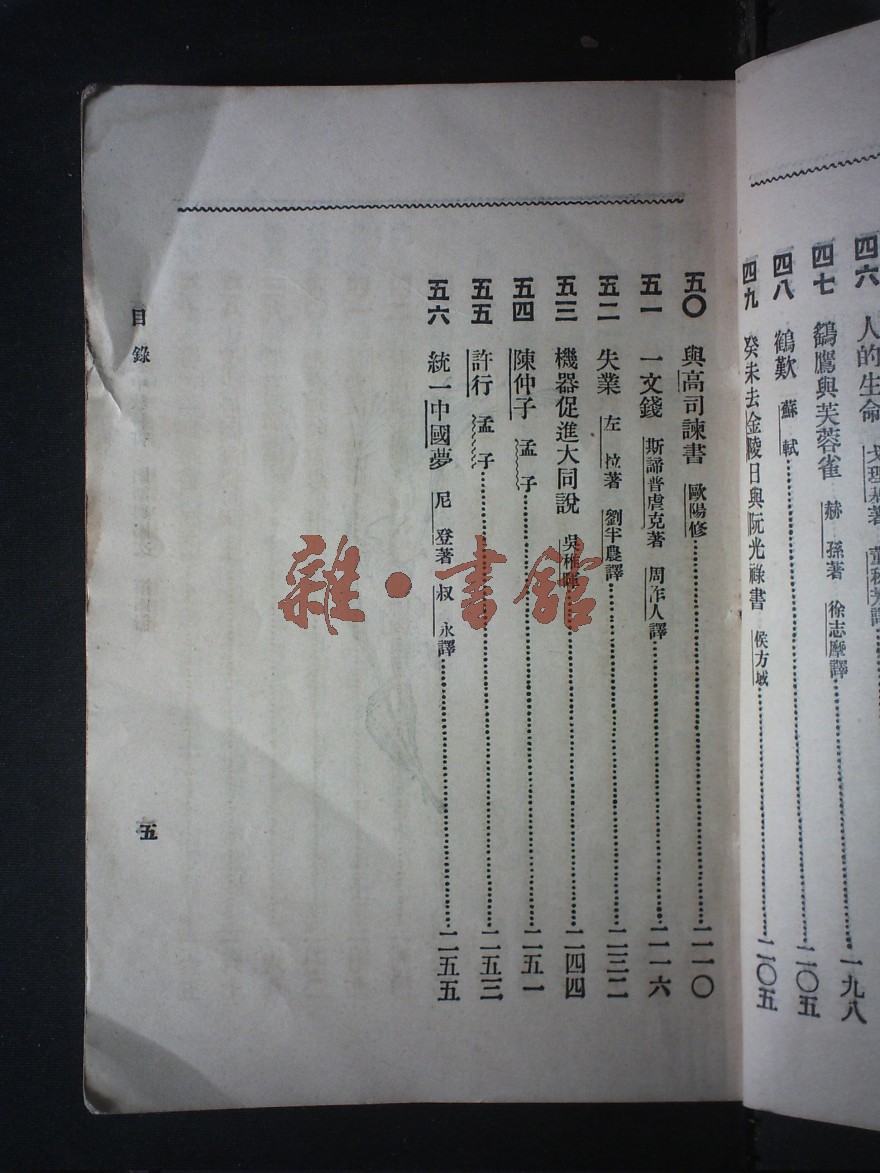 四六 人的生命 譯 一九八
四七 鷂鷹與芙蓉雀 赫孫著 徐志摩譯
四八 鶴歎 蘇軾 二〇五
四九 癸未去金陵日與阮光祿書 侯方域 二〇五
五〇 與高司諫書 歐陽修 二一〇
五一 一文錢 斯諦普虐克著 周作人譯 二一六
五二 失業 左拉著 劉半農譯 二三二
五三 機器促進大同說 吳稚暉 二四四
五四 陳仲子 孟子 二五一
五五 許行 孟子 二五三
五六 統一中國夢 尼登著 叔永譯 二五五
目錄
五
雜·書館